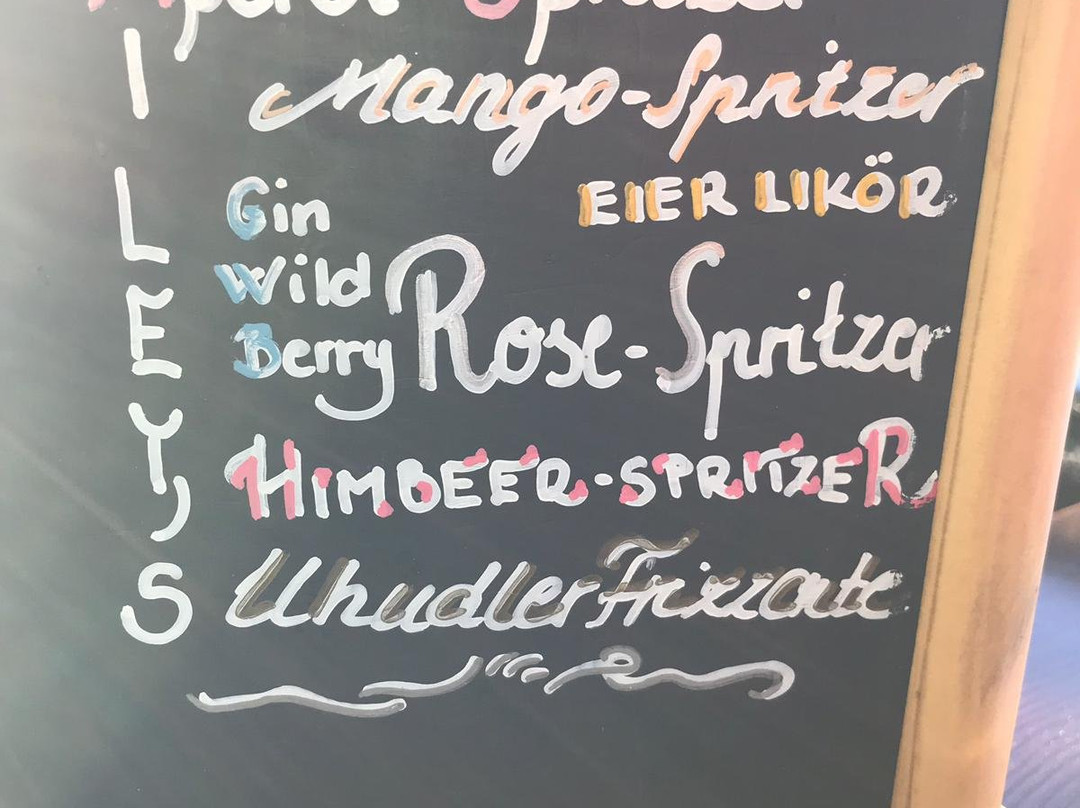 Aperol Spritzer
Mango-Spritzer
EIER LIKÖR
Gin
Wild
Berry
Rose-Spritzer
HIMBEER-SPRITZER
Uhudler Frizzante
I
L
E
Y
,
S